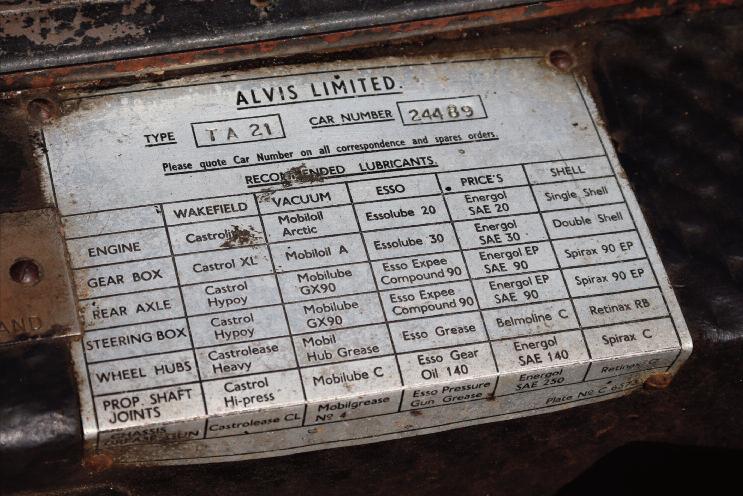 ALVIS LIMITED.
TYPE TA 21 CAR NUMBER 24489
Please quote Car Number on all correspondence and spares orders.
LUBRICANTS.
WAKEFIELD VACUUM ESSO PRICE'S SHELL
ENGINE Mobiloil Arctic Essolube 20 Energol SAE 20 Single Shell
GEAR BOX Castrol XL Mobiloil A Essolube 30 Energol SAE 30 Double Shell
REAR AXLE Castrol Hypoy Mobilube GX90 Esso Expee Compound 90 Energol EP SAE 90 Spirax 90 EP
STEERING BOX Castrol Hypoy Mobilube GX90 Esso Expee Compound 90 Energol EP SAE 90 Spirax 90 EP
WHEEL HUBS Castrolease Heavy Mobil Hub Grease Esso Grease Belmoline C Retinax RB
PROP. SHAFT JOINTS Castrol Hi-press Mobilube C Esso Gear Oil 140 Energol SAE 140 Spirax C
CHASSIS Castrolease CL Mobilgrease Nº 4 Esso Pressure Gun Grease Energol SAE 250 Retinax C
Plate Nº C 6573